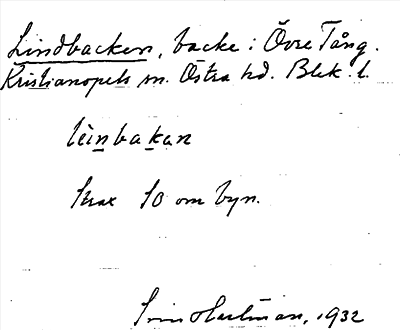 Lindbacken, backe i Övre Tång.
Kristianopels sn. Östra hd. Blek. l.
lèinbakan
Strax SO om byn.
1932